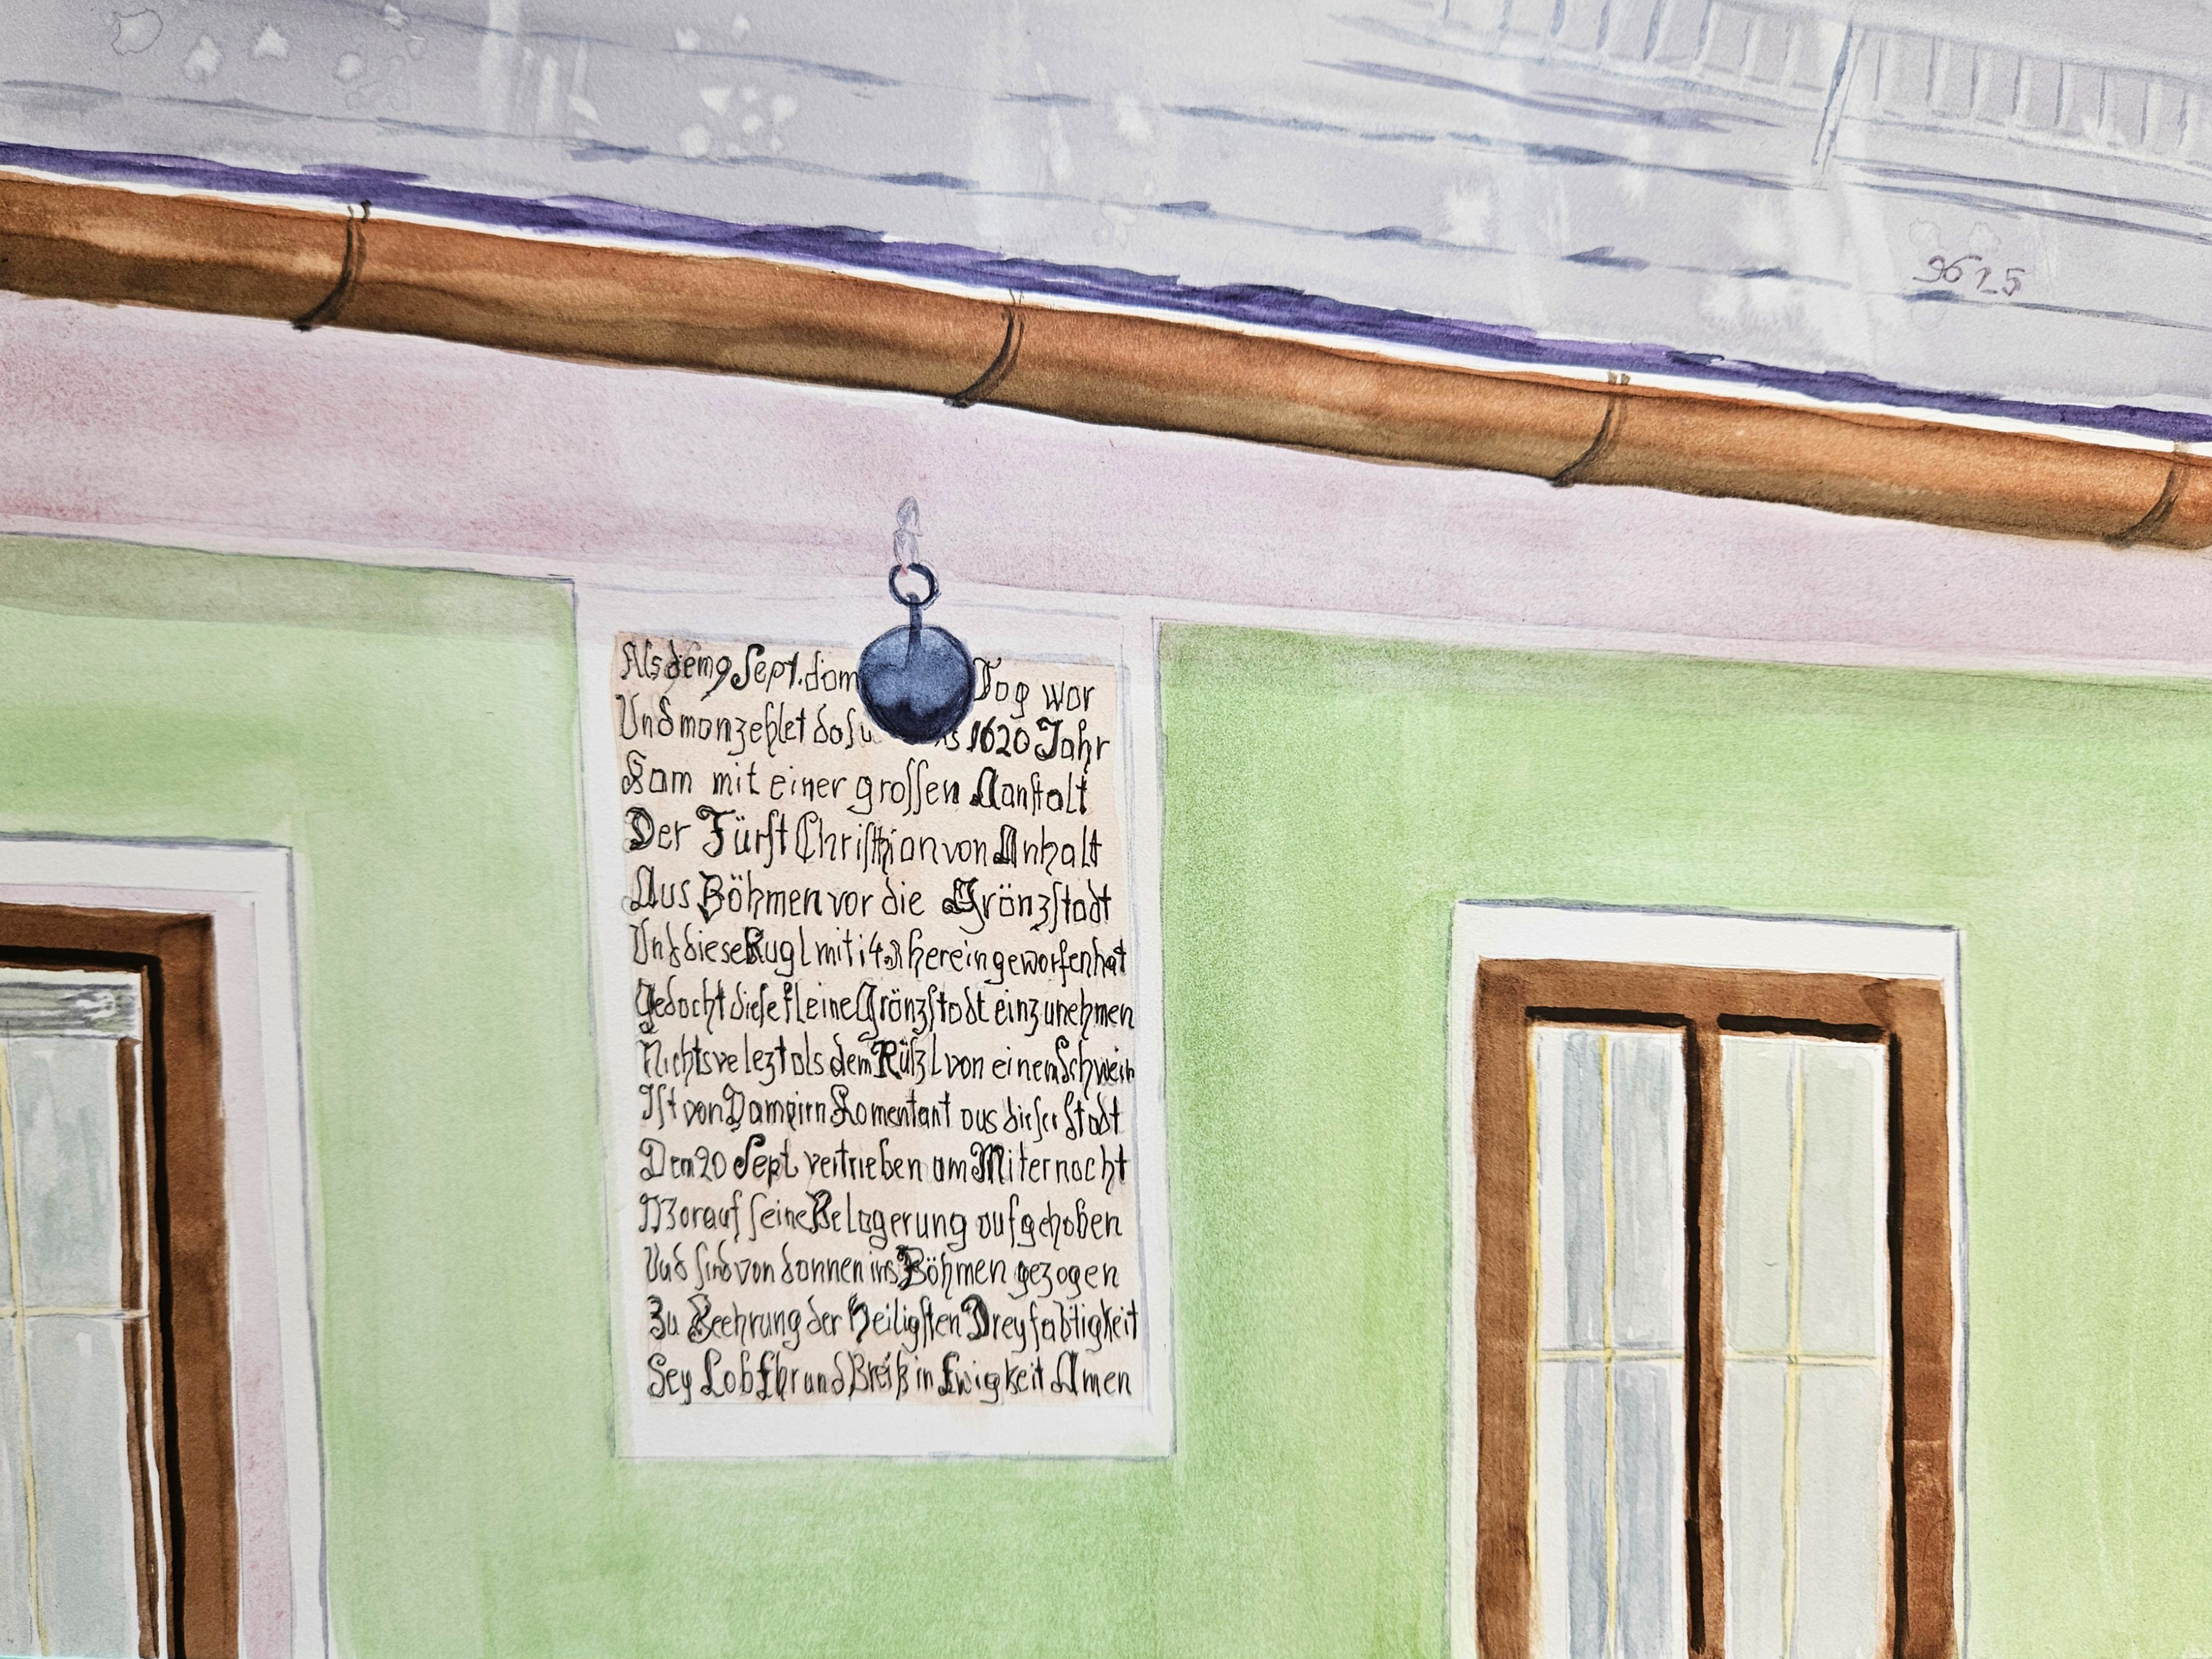 9625
Als dem 9 Sept. dom Tog wor
Und mon zehlet dos 1620 Jahr
Kam mit einer grossen Aanstalt
Der Fürst Christhian von Anhalt
Aus Böhmen vor die Gränzstadt
Und diese Kugl mit i4 herein geworfen hat
Gedacht diese kleine Gränzstadt einzunehmen
Nichts velezt als dem Rüßl von einem Schwein
Ist von Dampirn Komentant aus dieser Stadt
Den 20 Sept vertrieben am Miternacht
Worauf seine Belagerung aufgehoben
Und sind von dannen ins Böhmen gezogen
Zu Beehrung der Heiligsten Dreyfaltigkeit
Sey Lob Ehr und Breiß in Ewigkeit Amen